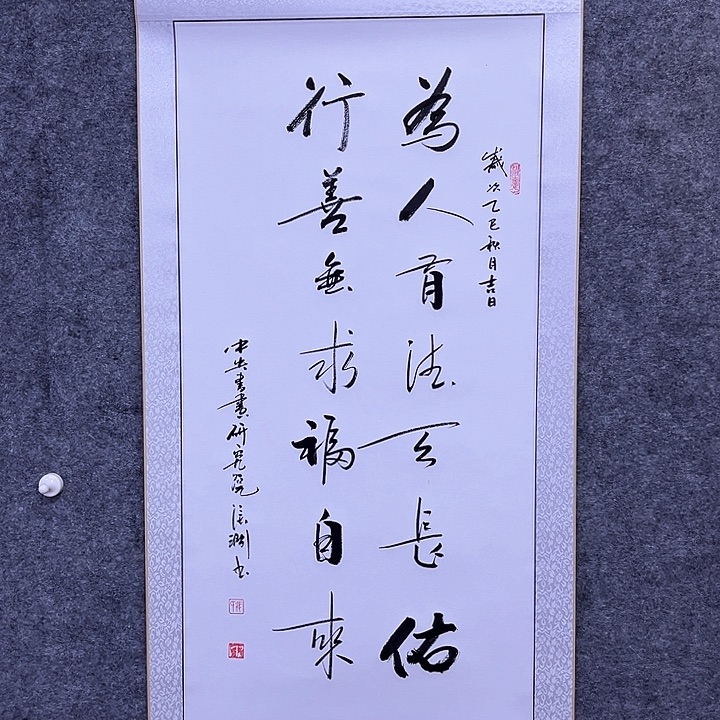 歲次乙巳秋月吉日
為人有德天長佑
行善無求福自來
中央書畫研究院 渊书